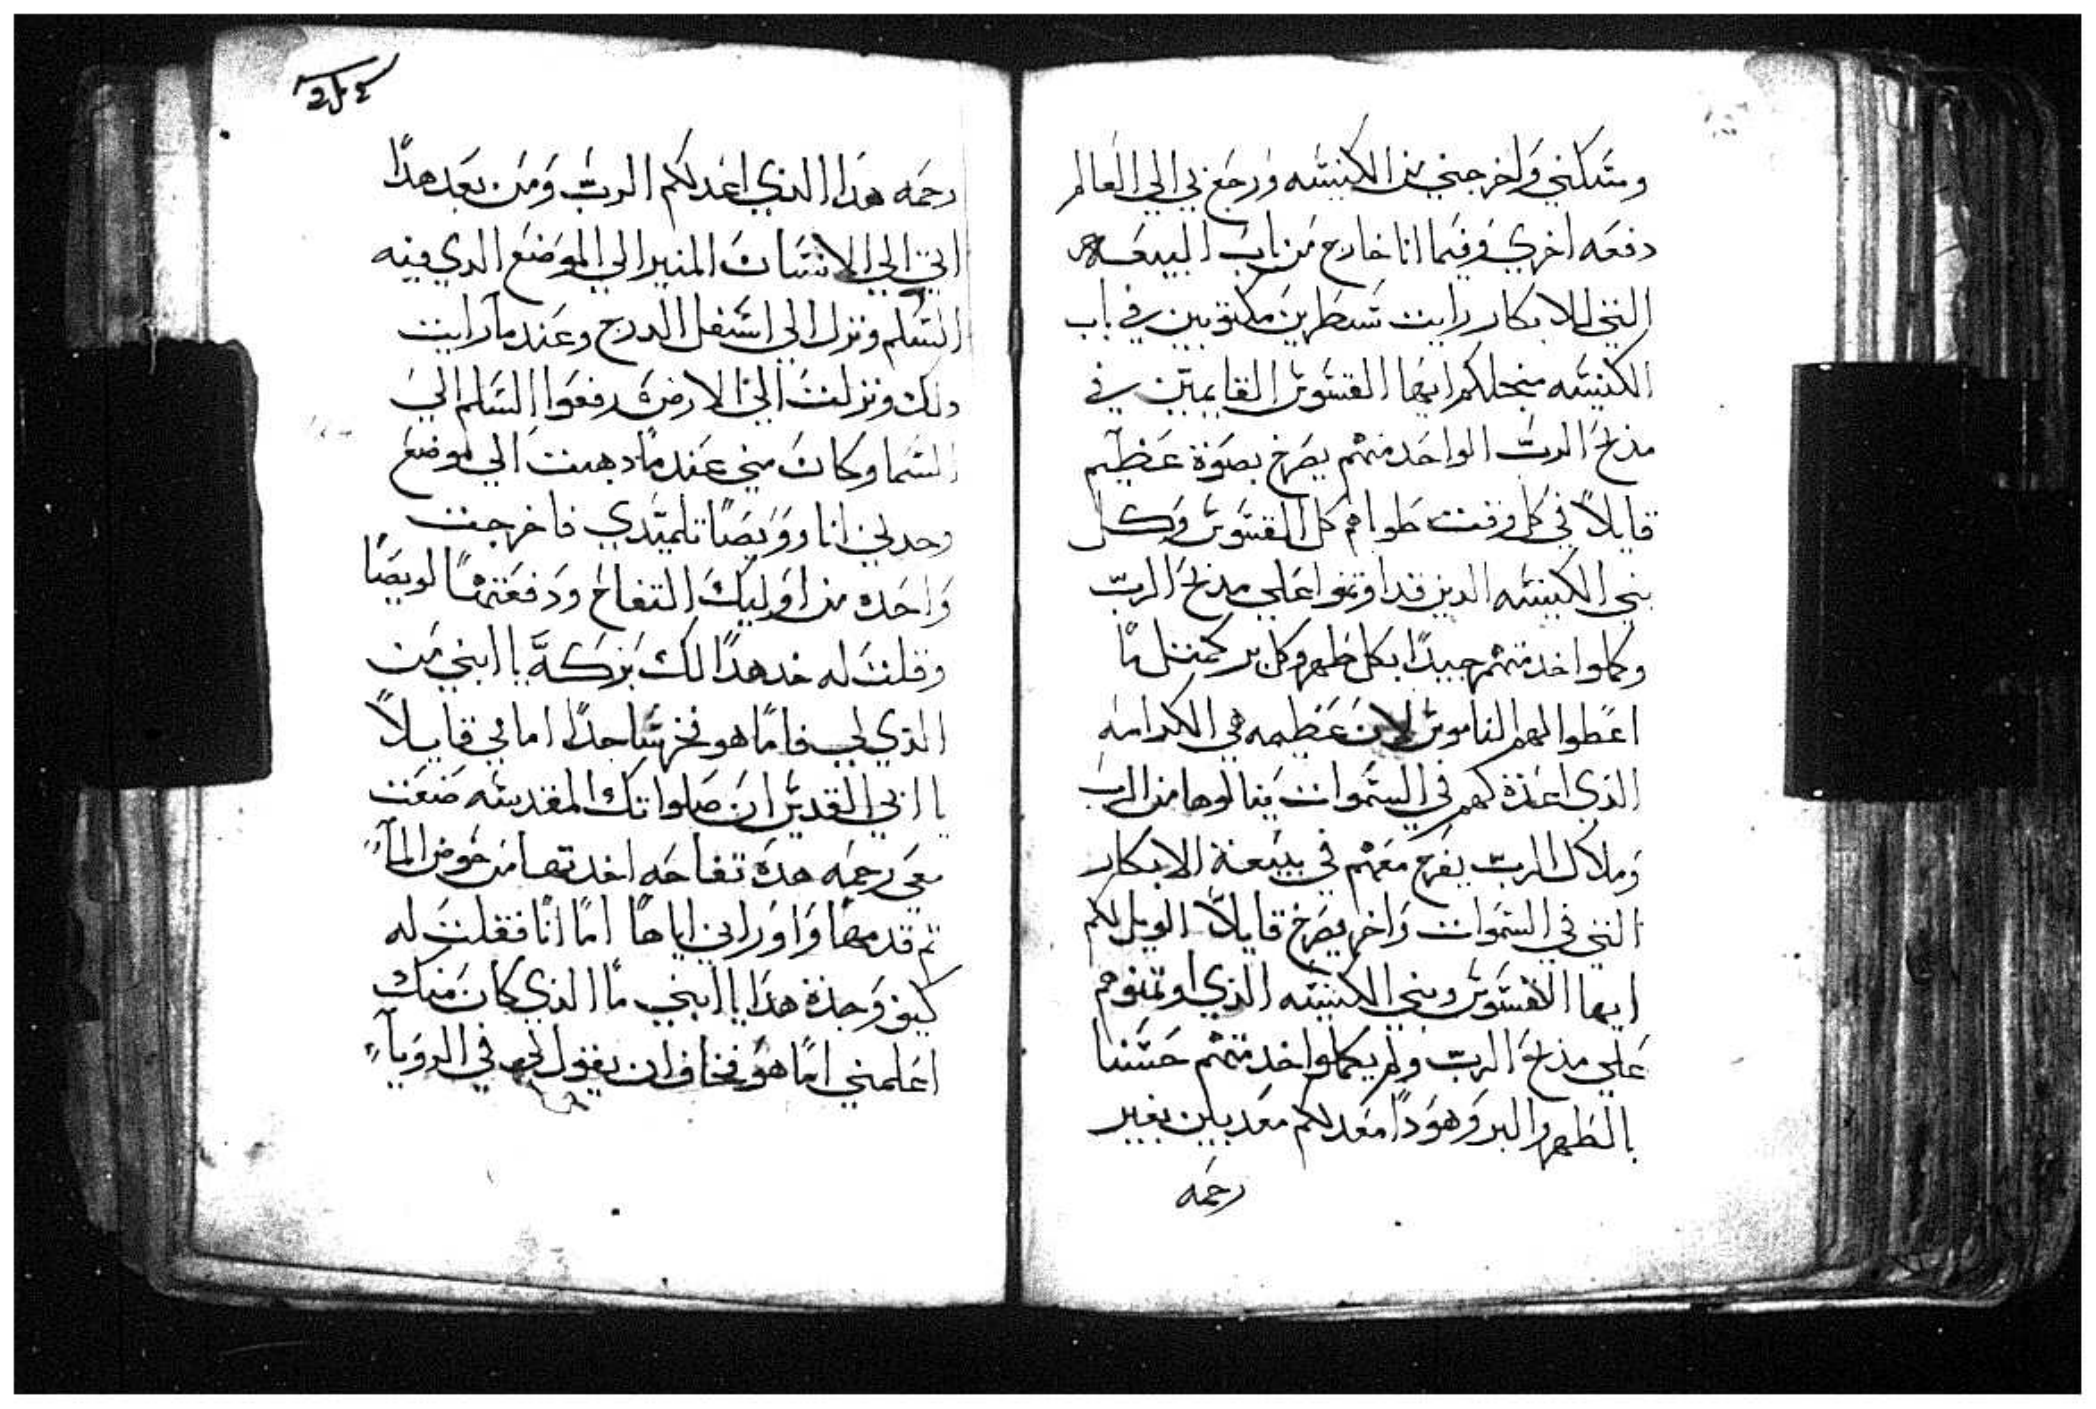 ومسكني واخرجني من الكنيسه ورجع بي الي العالم
دفعه اخري وفيما انا خارج من باب البيعه
التي للابكار رايت سطرين مكتوبين في باب
الكنيسه منجلكم ايها القسوس القايمين في
مذبح الرب الواحد منهم يصرخ بصوة عظيم
قايلاً في كل وقت طوباهم كل القسوس وكل
بني الكنيسه الدين قد اوتمنوا علي مدبح الرب
وكملوا خدمتهم جيدًا بكل طهر وكل بر كمتل ما
اعطوا لهم الناموس لان عظيمه هي الكرامه
الذي اعدة لهم في السموات ينالوها من الرب
وملاك الرب يفرح معهم في بيعة الابكار
التي في السموات واخر يصرخ قايلاً الويل لكم
ايها القسوس وبني الكنيسه الذي اوتمنوهم
علي مذبح الرب ولم يكملوا خدمتهم حسنا
بالطهر والبر وهودا معد لكم معدبين بغير
رحمه
رحمه هدا الذي اعد لكم الرب ومن بعد هدًا
اتي الي الانسان المنير الي الموضع الدي فيه
السلم ونزل الي اسفل الدرج وعند ما رايت
دلك ونزلت الي الارض رفعوا السلم الي
السما وكان مني عند ما دهبت الي موضع
وحدني انا وويصًا تلميدي فاخرجت
واحده من اوليك التفاح ودفعتها لويصًا
وقلت له خد هدا لك بركة يا ابني من
الذي لي فاما هو فخر ساجدًا امامي قايلاً
يا ابي القديس ان صلواتك المقدسه صنعت
معي رحمه هده تفاحه اخدتها من حوض المآ
تم قدمها واوراني اياها امًا انًا فقلت له
كيف وجدة هدا يا ابني ما الذي كان منك
اعلمني امًا هو فخاف ان يقول لي في الرويآ